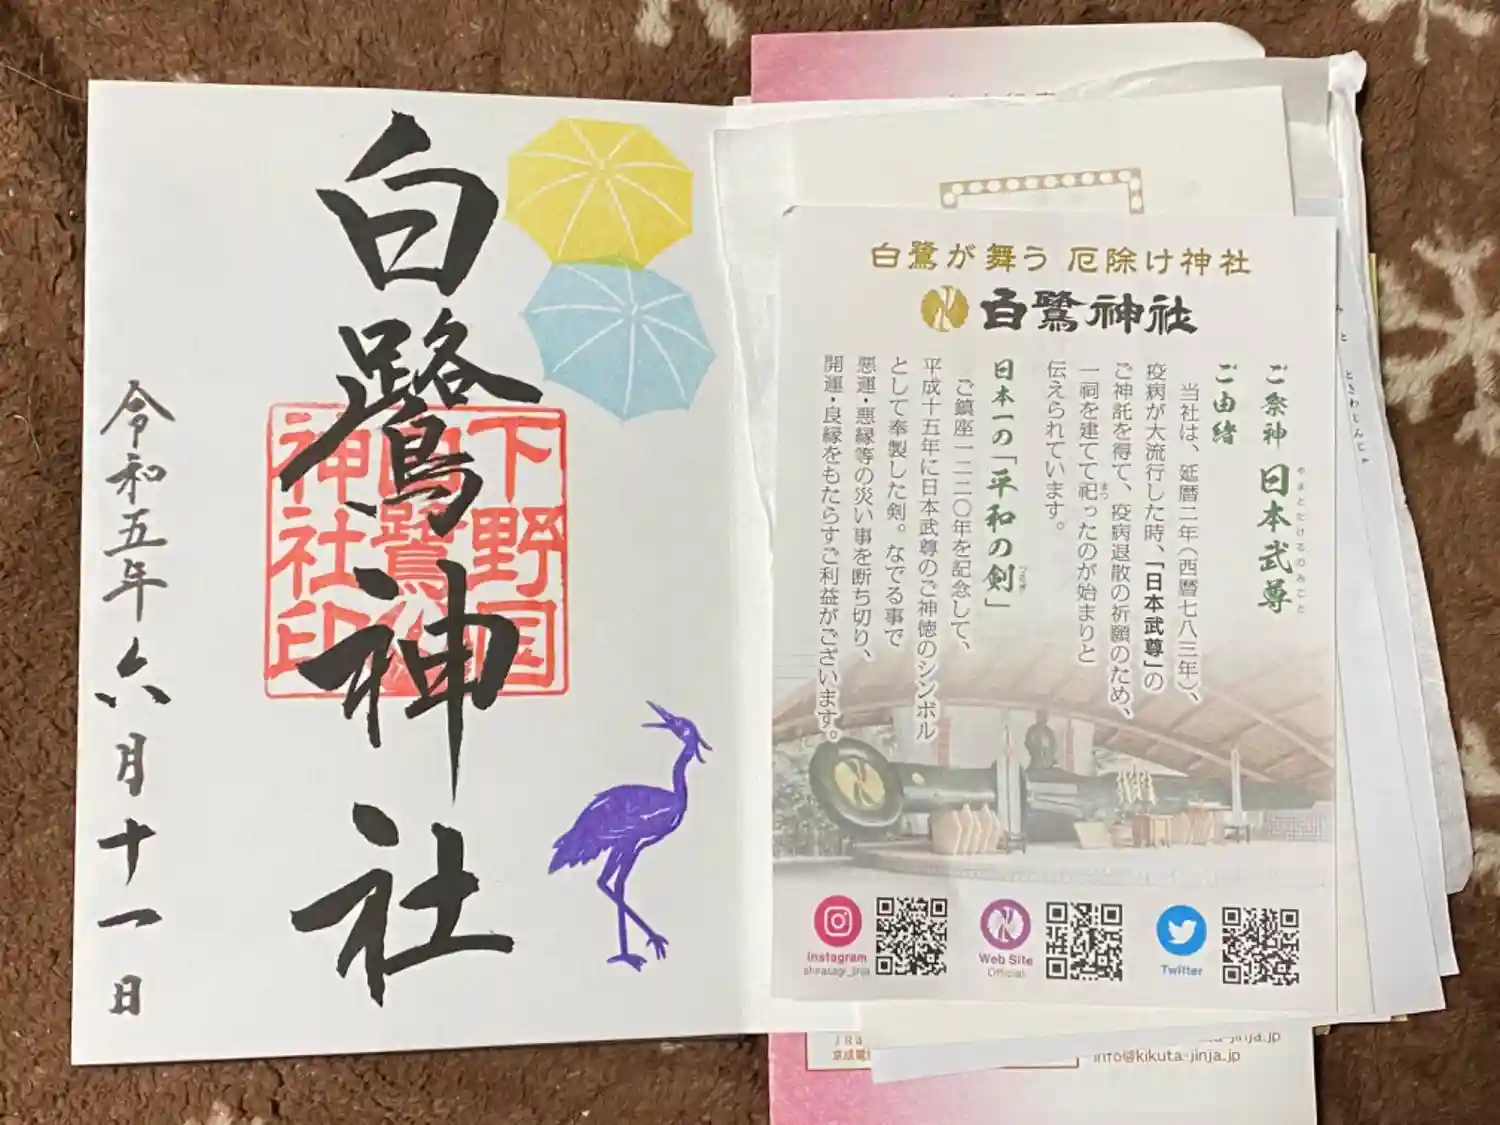 白鷺神社
下野国
白鷺
神社印
令和五年六月十一日
白鷺が舞う 厄除け神社
白鷺神社
ご祭神 日本武尊
やまとたけるのみこと
ご由緒
当社は、延暦二年(西暦七八三年)、
疫病が大流行した時、「日本武尊」の
ご神託を得て、疫病退散の祈願のため、
一祠を建てて祀ったのが始まりと
まつ
伝えられています。
日本一の「平和の剣」
つるぎ
ご鎮座一二二〇年を記念して、
平成十五年に日本武尊のご神徳のシンボル
として奉製した剣。なでる事で
悪運・悪縁等の災い事を断ち切り、
開運・良縁をもたらすご利益がございます。
Instagram
shirasagi_jinja
Web Site
Official
Twitter
ときわじんじゃ
info@kikuta-jinja.jp